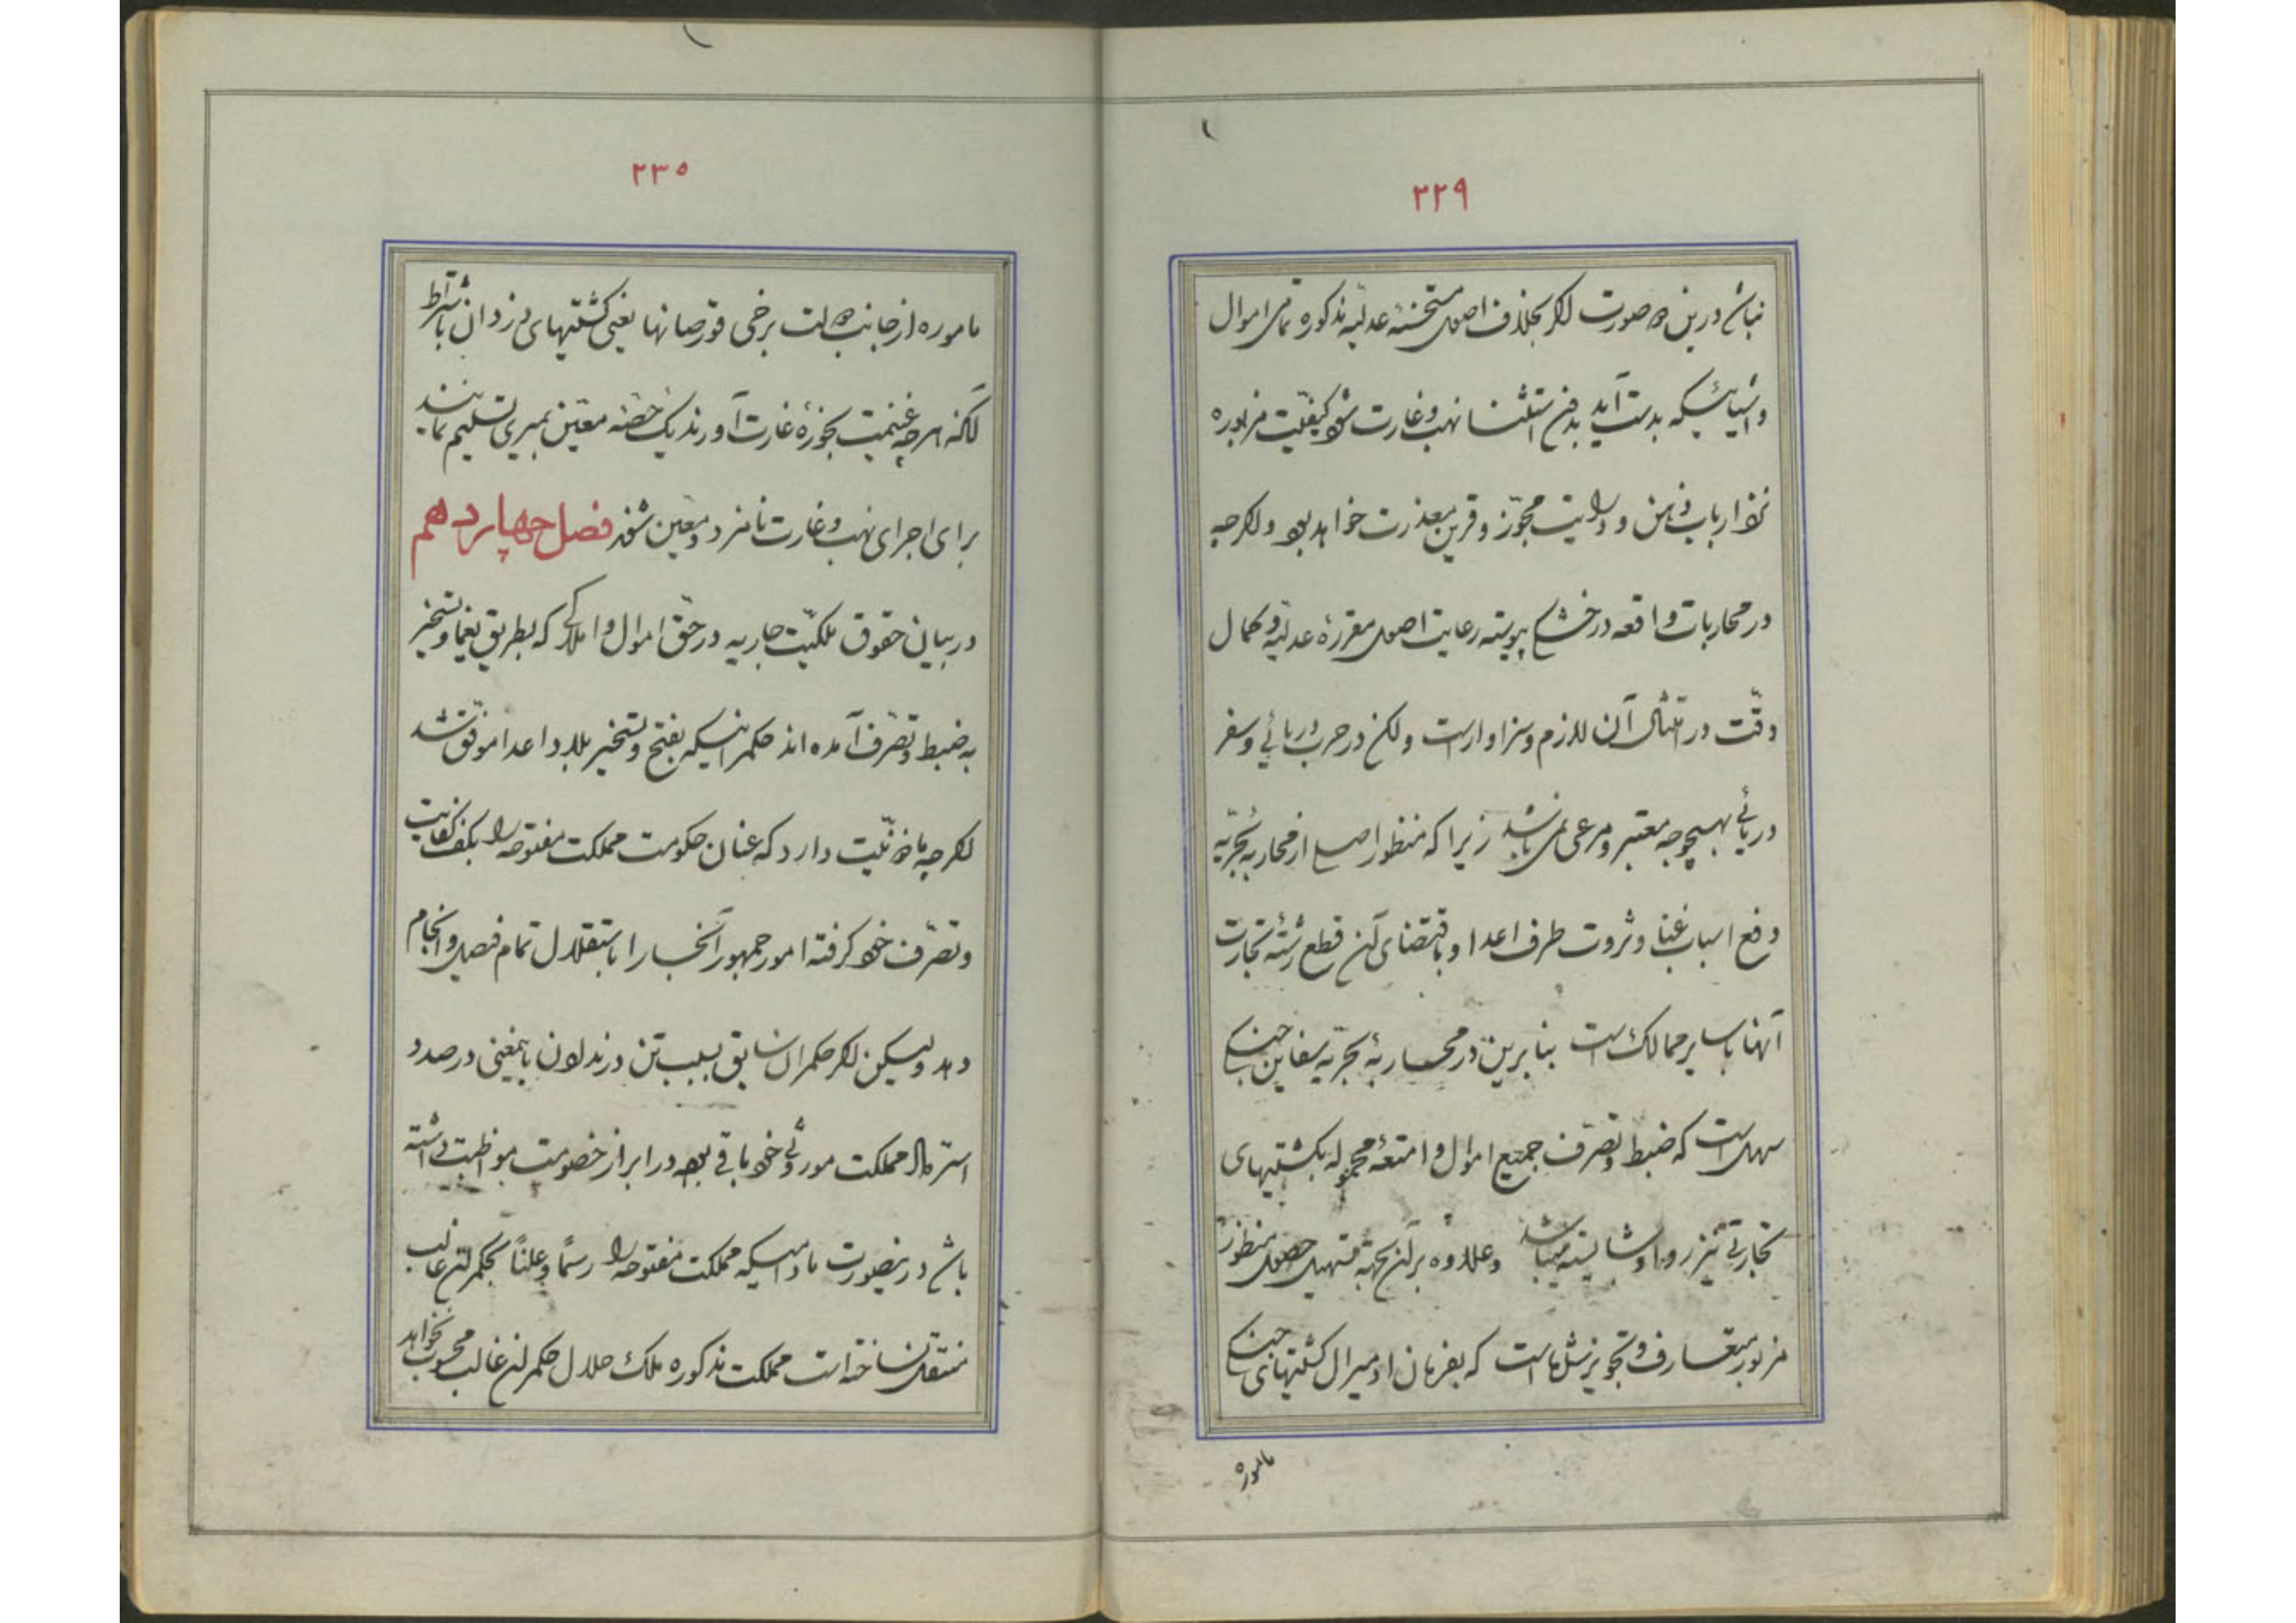 ۲۲۹
نباشد درین دو صورت اگر بخلاف اصول مستحسنهٔ عدلیّه مذکوره تمامی اموال
و اشیائیکه بدست آید بدون استثنا نهب و غارت شود کیفیّت مزبوره
نزد ارباب ذهن و درایت مجوّز و قرین معذرت خواهد بود و اگرچه
در محاربات واقعه در خشکی پیوسته رعایت اصول مقررهٔ عدلیّه و کمال
دقّت در امتثال آن لازم و سزاوار است ولکن در حرب دریائی و سفر
دریائی بهیچوجه معتبر و مرعی نمی باشد زیرا که منظور اصلی از محاربه بحریّه
دفع اسباب غنا و ثروت طرف اعدا و باقتضای آن قطع رشته تجارت
آنها با سایر ممالک است بنابرین در محاربهٔ بحریّه سفاین جنگی
سهل است که ضبط و تصرّف جمیع اموال و امتعهٔ محموله بکشتیهای
تجارتی نیز روا و شایسته میباشد و علاوه بر آن بجهة تسهیل حصول منظور
مزبور متعارف و تجویز شده است که بفرمان ادمیرال کشتیهای جنگی
ماموره
۲۳۰
ماموره از جانب دولت برخی قورصانها یعنی کشتیهای دزدان باشتراط
آنکه هرچه غنیمت بحوزهٔ غارت آورند یک حصّهٔ معیّن بمیری تسلیم نمایند
برای اجرای نهب و غارت نامزد و معیّن شوند فصل چهاردهم
در بیان حقوق ملکیّت جاریه در حقّ اموال و املاکی که بطریق یغما و تسخیر
به ضبط و تصرّف آمده اند حکمرانیکه بفتح و تسخیر بلاد اعدا موفّق شد
اگرچه ماذونیّت دارد که عنان حکومت مملکت مفتوحه را بکف کفایت
و تصرّف خود گرفته امور جمهور آنجا را باستقلال تمام فیصل و انجام
دهد ولیکن اگر حکمران سابق بسبب تن در ندادن باینمعنی در صدد
استرداد مملکت موروثی خود باقی بوده در ابراز خصومت مواظبت داشته
باشد درینصورت مادامیکه مملکت مفتوحه را رسماً و علناً بحکمران غالب
منتقل نساخته است مملکت مذکوره ملک حلال حکمران غالب محسوب نخواهد